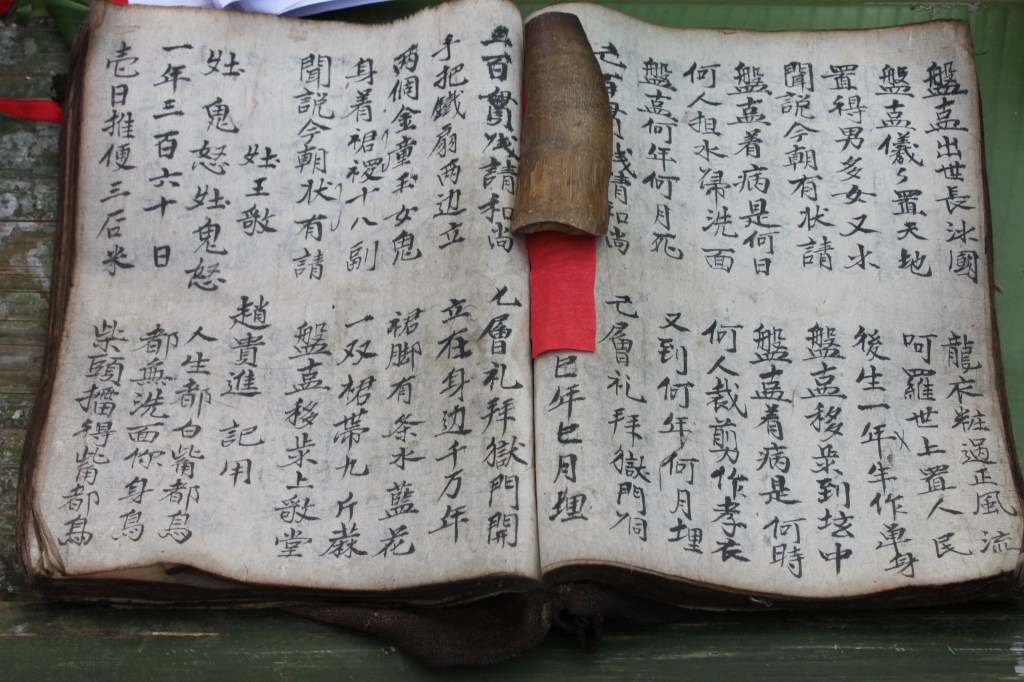 盤盍出世長沐國 龍衣粧過正風流
盤盍儀々置天地 呵羅世上置人民
置得男多女又少 後生一年半作单身
聞説今朝有状請 盤盍移步到坛中
盤盍着病是何日 盤盍着病是何時
何人担水归洗面 何人裁剪作孝衣
盤盍何年何月死 又到何年何月埋
百貫浅請和尚 己層礼拜獄門洞
巳年巳月埋
百貫浅請和尚 七層礼拜獄門開
手把鐵扇两边立 立在身边千万年
两個金童玉女鬼 裙脚有条水藍花
身着裙十八副 一双裙帯九斤蔴
聞説今朝状有請 盤盍移步上歌堂
妵王敬 趙貴進 記用
妵鬼怒妵鬼怒 人生都白觜都烏
一年三百六十日 都無洗面你身烏
壱日推便三石米 柴頭擂得觜都烏